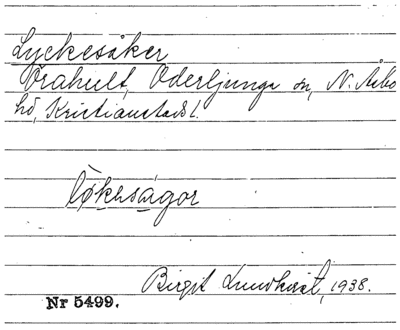 Lyckesåker
Vrahult, Oderljunga sn, N. Åsbo
hd, Kristianstads l.
løkesågor
Birgit Lundkvist, 1938.
Nr 5499.